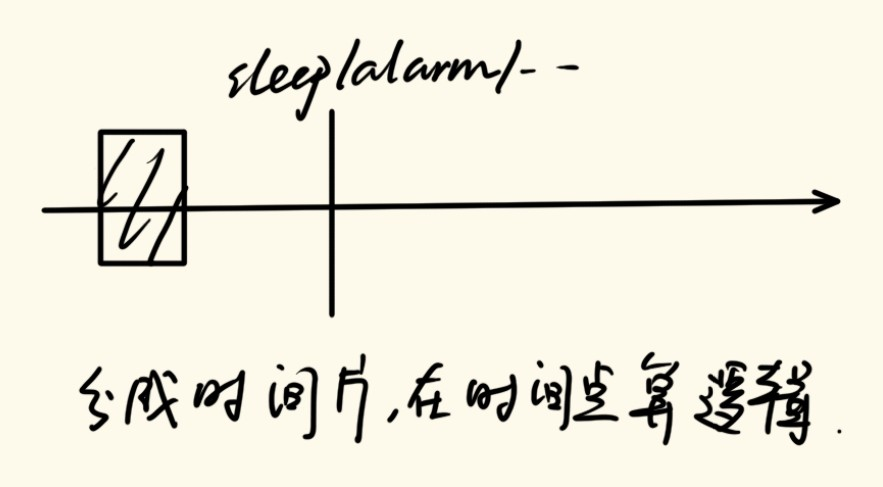 sleep/alarm/--
分成时间片,在时间点算逻辑.